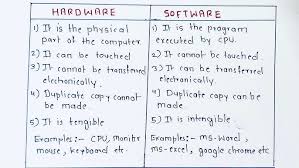 HARDWARE
1) It is the physical
part of the computer.
2) It can be touched
3) It cannot be transferred
electronically.
4) Duplicate copy cannot
be made.
5) It is tengible
Examples:- CPU, monitor
mouse, keyboard etc.
SOFTWARE
1) It is the program
executed by CPU.
2) It cannot be touched.
3) It can be transferred
electronically.
4) Duplicate copy can be
made.
5) It is intengible.
Examples:- ms-word,
ms-excel, google chrome etc